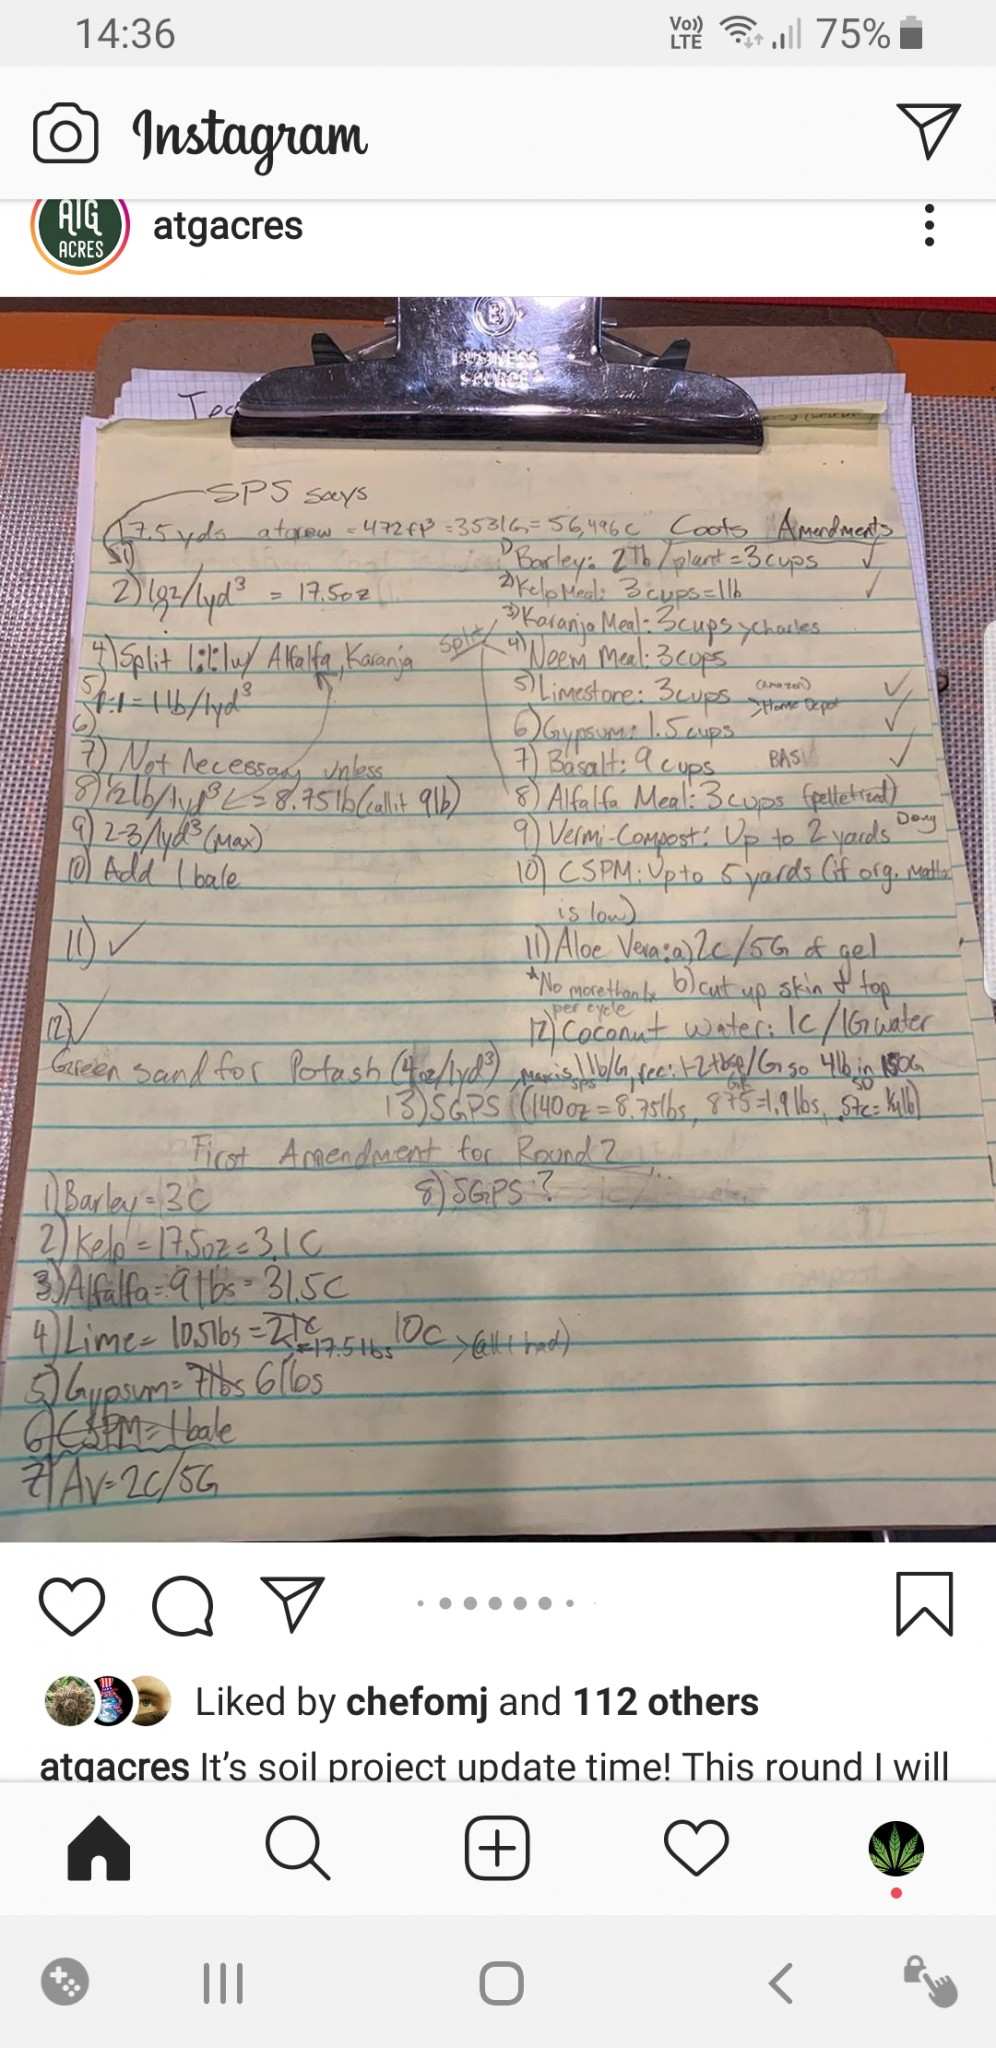 14:36 Vo)) LTE 75%
Instagram
ATG ACRES atgacres
BUSINESS SOURCE
SPS says
17.5 yds atgrow = 472ft³ = 3531G = 56,496c Coots Amendments
1) Barley: 2Tb/plant = 3cups
2) 1oz/1yd³ = 17.5oz 2) Kelp Meal: 3 cups=1lb
3) Karanja Meal: 3cups >charles
4) Split 1:1:1 w/ Alfalfa, Karanja split 4) Neem Meal: 3cups
5) 1:1=1lb/1yd³ 5) Limestone: 3cups (Amazon) >Home Depot
6) 6) Gypsum: 1.5 cups
7) Not Necessary unless 7) Basalt: 9 cups BAS
8) ½lb/1yd³ <= 8.75lb (call it 9lb) 8) Alfalfa Meal: 3cups (pelletized)
9) 2-3/1yd³ (Max) 9) Vermi-Compost: Up to 2 yards Doug
10) Add 1 bale 10) CSPM: Up to 5 yards (if org. matter
is low)
11) ✓ 11) Aloe Vera: a) 2c/5G of gel
*No more than 1x per cycle b) cut up skin & top
12) ✓ 12) Coconut water: 1C/1G water
Green sand for Potash (4oz/1yd³) Max is 1lb/G, rec: 1-2tbsp/G so 4lb in 150G
13) SGPS (140oz = 8.75lbs, 875=1.9lbs, 57c=¼lb)
First Amendment for Round 2
1) Barley = 3C 8) SGPS?
2) Kelp = 17.5oz = 3.1C
3) Alfalfa = 9lbs = 31.5C
4) Lime = 10.5lbs = 21c =17.5lbs 10C >(all I had)
5) Gypsum = 7lbs 6lbs
6) CSPM = 1 bale
7) Av = 2C/5G
Liked by chefomj and 112 others
atgacres It's soil project update time! This round I will